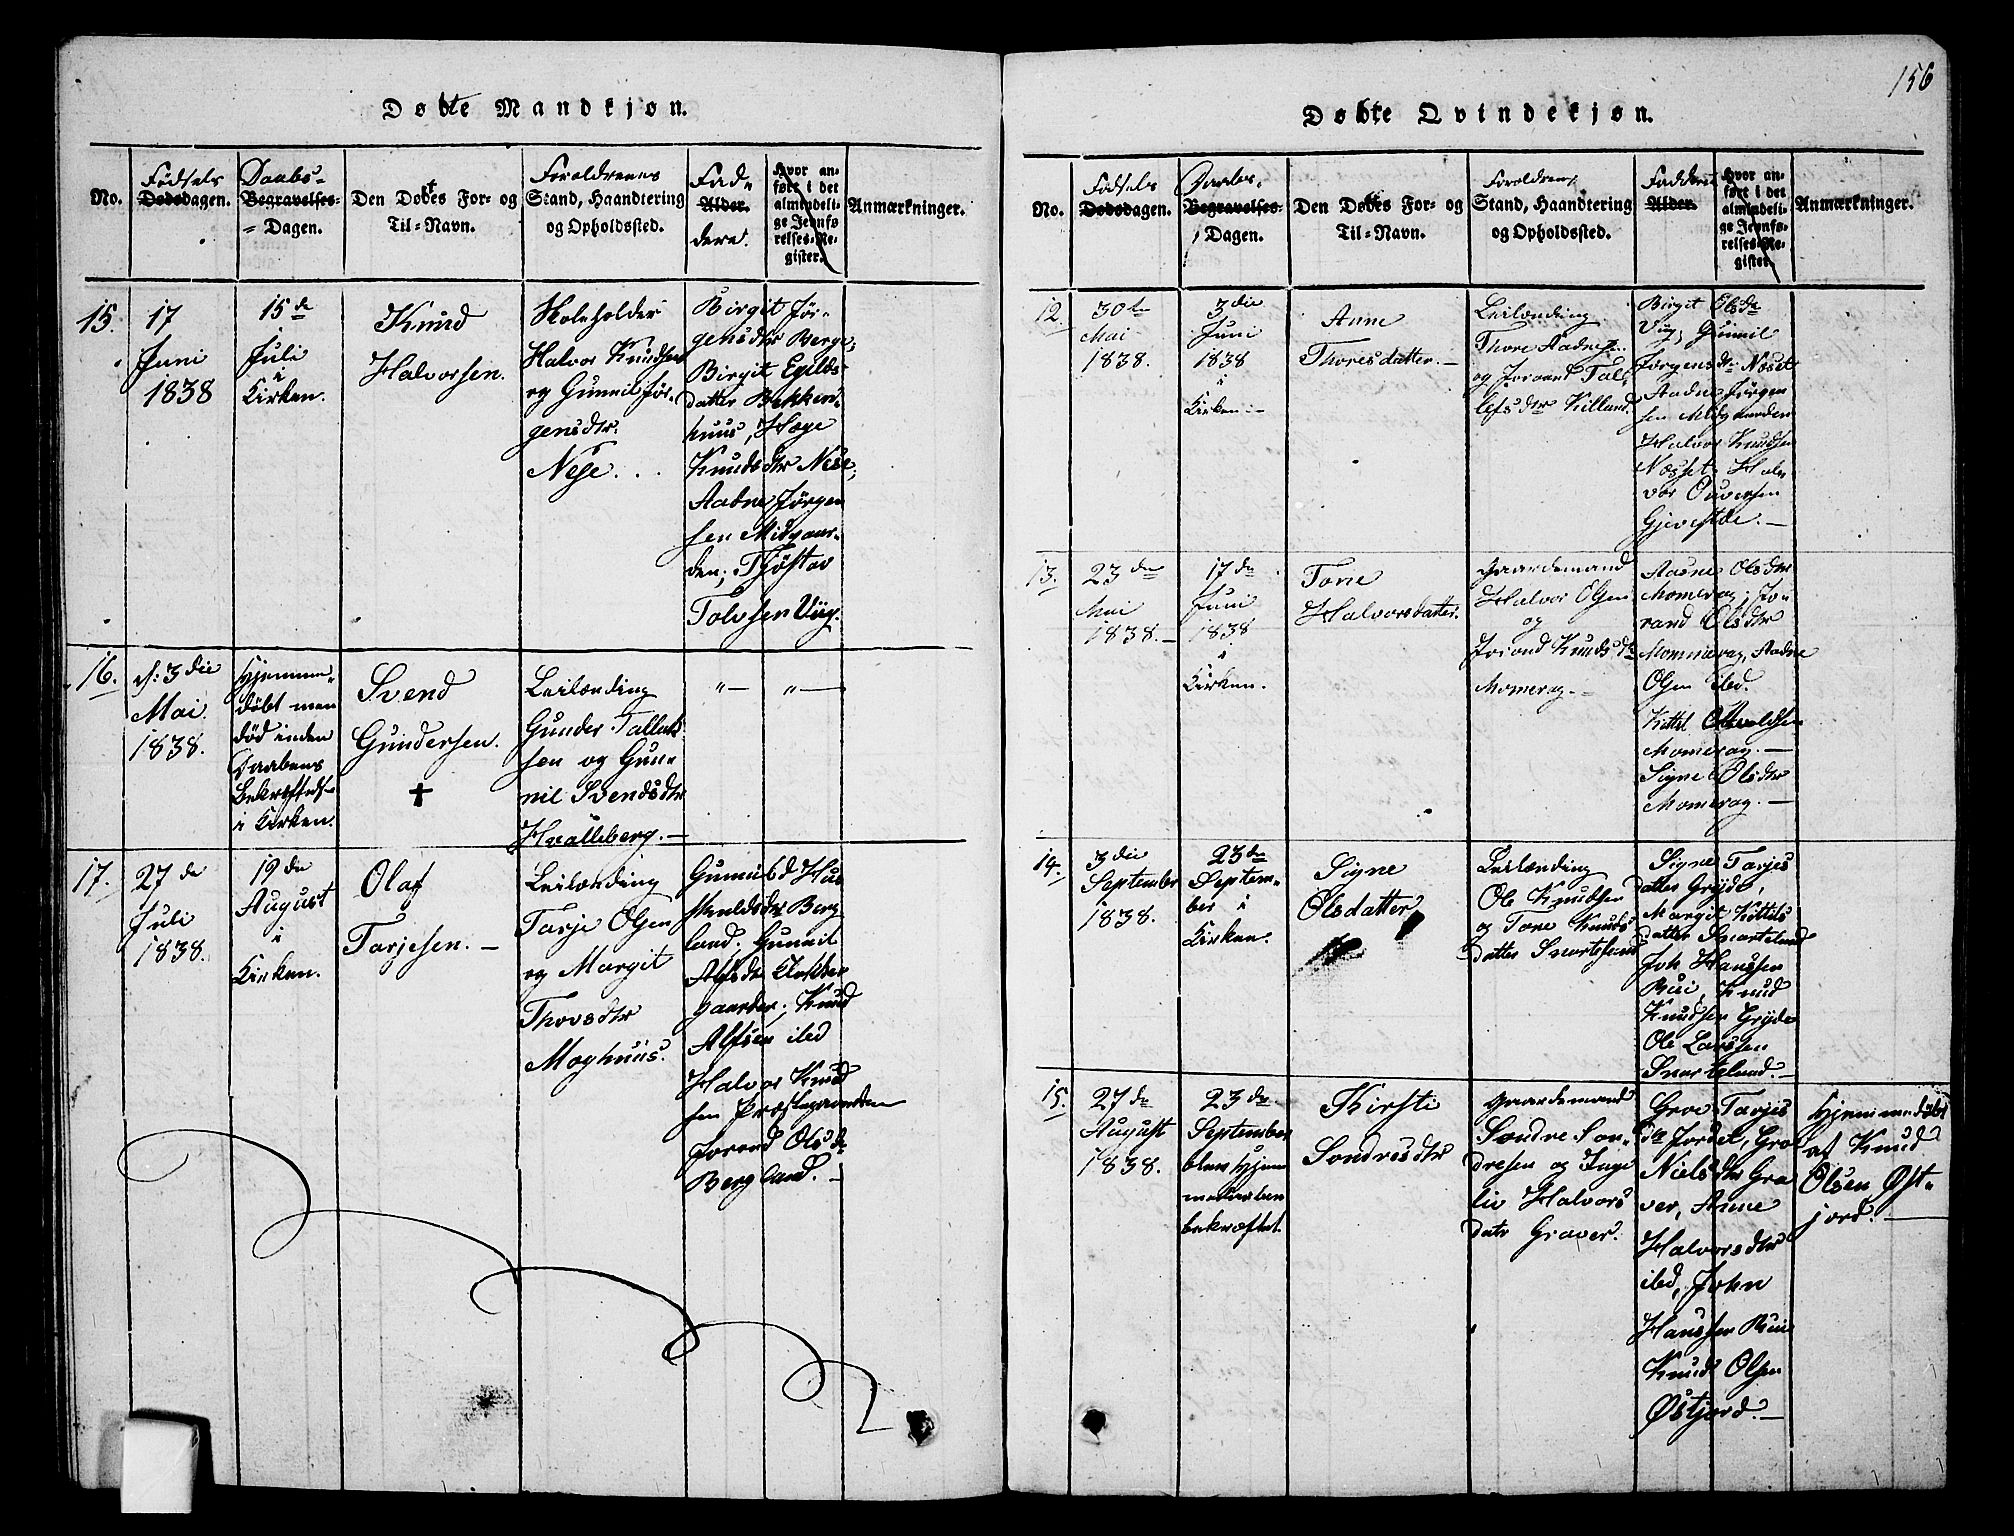 Døbte Mandkjøn.
No.
Fødsels
Dødsdagen.
Daabs-
Begravelses-
= Dagen.
Den Døbtes For- og
Til-Navn.
Forældrenes
Stand, Haandtering
og Opholdssted.
Fad-
Alder.
dere.
Hvor an-
ført i det
almindeli-
ge Jevnfø-
relses-Re-
gister.
Anmærkninger.
15.
17
Juni
1838
15de
Juli
i
Kirken.
Knud
Halvorsen.
Skoleholder
Halvor Knudsen
og Gunnil Jør-
gensdtr.
Nese.
Birgit Jør-
gensdtr Berge,
Birgit Egilds-
datter Bekken-
huus, Hæge
Knudsdtr Nese,
Aadne Jørgen
sen Midgaar-
den, Tjøstov
Tolvsen Vig.
16.
d: 3die
Mai
1838.
Hjemme-
døbt men
død inden
Daabens
Bekræftelse
i Kirken.
Svend
Gundersen.
✝
Leilænding
Gunder Talleks
sen og Gun-
nil Svendsdtr
Hvalleberg.
"— "—
17.
27de
Juli
1838.
19de
August
i
Kirken.
Olaf
Tarjesen. —
Leilænding
Tarje Olsen
og Margit
Thovsdtr
Moghuus.
Gunnild Hus
skuldsdtr Berg
land. Gunnil
Alfsdr Klokker
gaarden, Knud
Alfsen ibid
Halvor Knud
sen Præstegaarden
Jorand Olsdr
Bergland. —
156
Døbte Qvindekjøn.
No.
Fødsels
Dødsdagen.
Daabs-
Begravelses-
Dagen.
Den Døbtes For- og
Til-Navn.
Forældrens
Stand, Haandtering
og Opholdssted.
Faddere
Alder.
Hvor an-
ført i det
almindeli-
ge Jevnfø-
relses-Re-
gister.
Anmærkninger.
12.
30te
Mai
1838.
3die
Juni
1838
i
Kirken. —
Anne
Thoresdatter. —
Leilænding
Thore Aadnes.
og Jorand Tal-
lefsdtr Killand.
Birgit Olsdr
Vig, Gunnil
Jørgensdr Næset
Aadne Jørgen
sen Midgaarden
Halvor Knudsen
Næsset, Hal-
vor Ouversen
Gjevestde. —
13.
23de
Mai
1838. —
17de
Juni
1838
i
Kirken.
Tone
Halvorsdatter.
Gaardemand
Halvor Olsen
og
Jorond Knudsdr
Momerag. —
Aasne Olsdtr
Momerag, Jo-
rand Olsdtr
Mommerag, Aadne
Olsen ibid.
Kittel Olavaldsen
Momerag. —
Signe Olsdtr
Momerag. —
14.
3die
September
1838.
23de
Septem-
ber i
Kirken.
Signe
Olsdatter
Leilænding
Ole Knudsen
og Tone Knuds
datter Snartelund
Signe Tarjes
datter Gryde,
Margit Kittels
datter Snartelund
Joh Hanssen
Bui, Knud
Knudsen Gryde
Ole Larssen
Snartelund. —
15.
27de
August
1838.
23de
September
blev Hjem
medaaben
bekræftet
Kirsti
Sondresdtr
Gaardemand
Sondre Son-
dresen og Inge
liv Halvors
datr Graver.
Groe Tarjes
dr Jordet, Gro
Nielsdtr Gra
ver, Anne
Halvorsdtr
ibid, John
Hanssen Bui
Knud Olsen
Østjord. —
Hjemmedøbt
af Knud
Olsen Øst-
jord. —